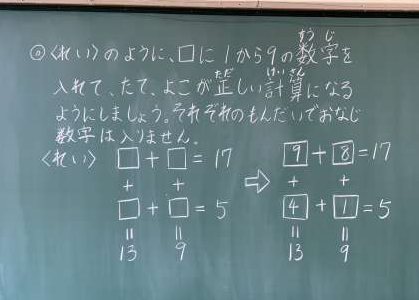 ◎〈れい〉のように、□に1から9の数字を
入れて、たて、よこが正しい計算になる
ようにしましょう。それぞれのもんだいでおなじ
数字は入りません。
〈れい〉 □+□=17 ⇨ 9+8=17
+ + + +
□+□=5 4+1=5
= = = =
13 9 13 9